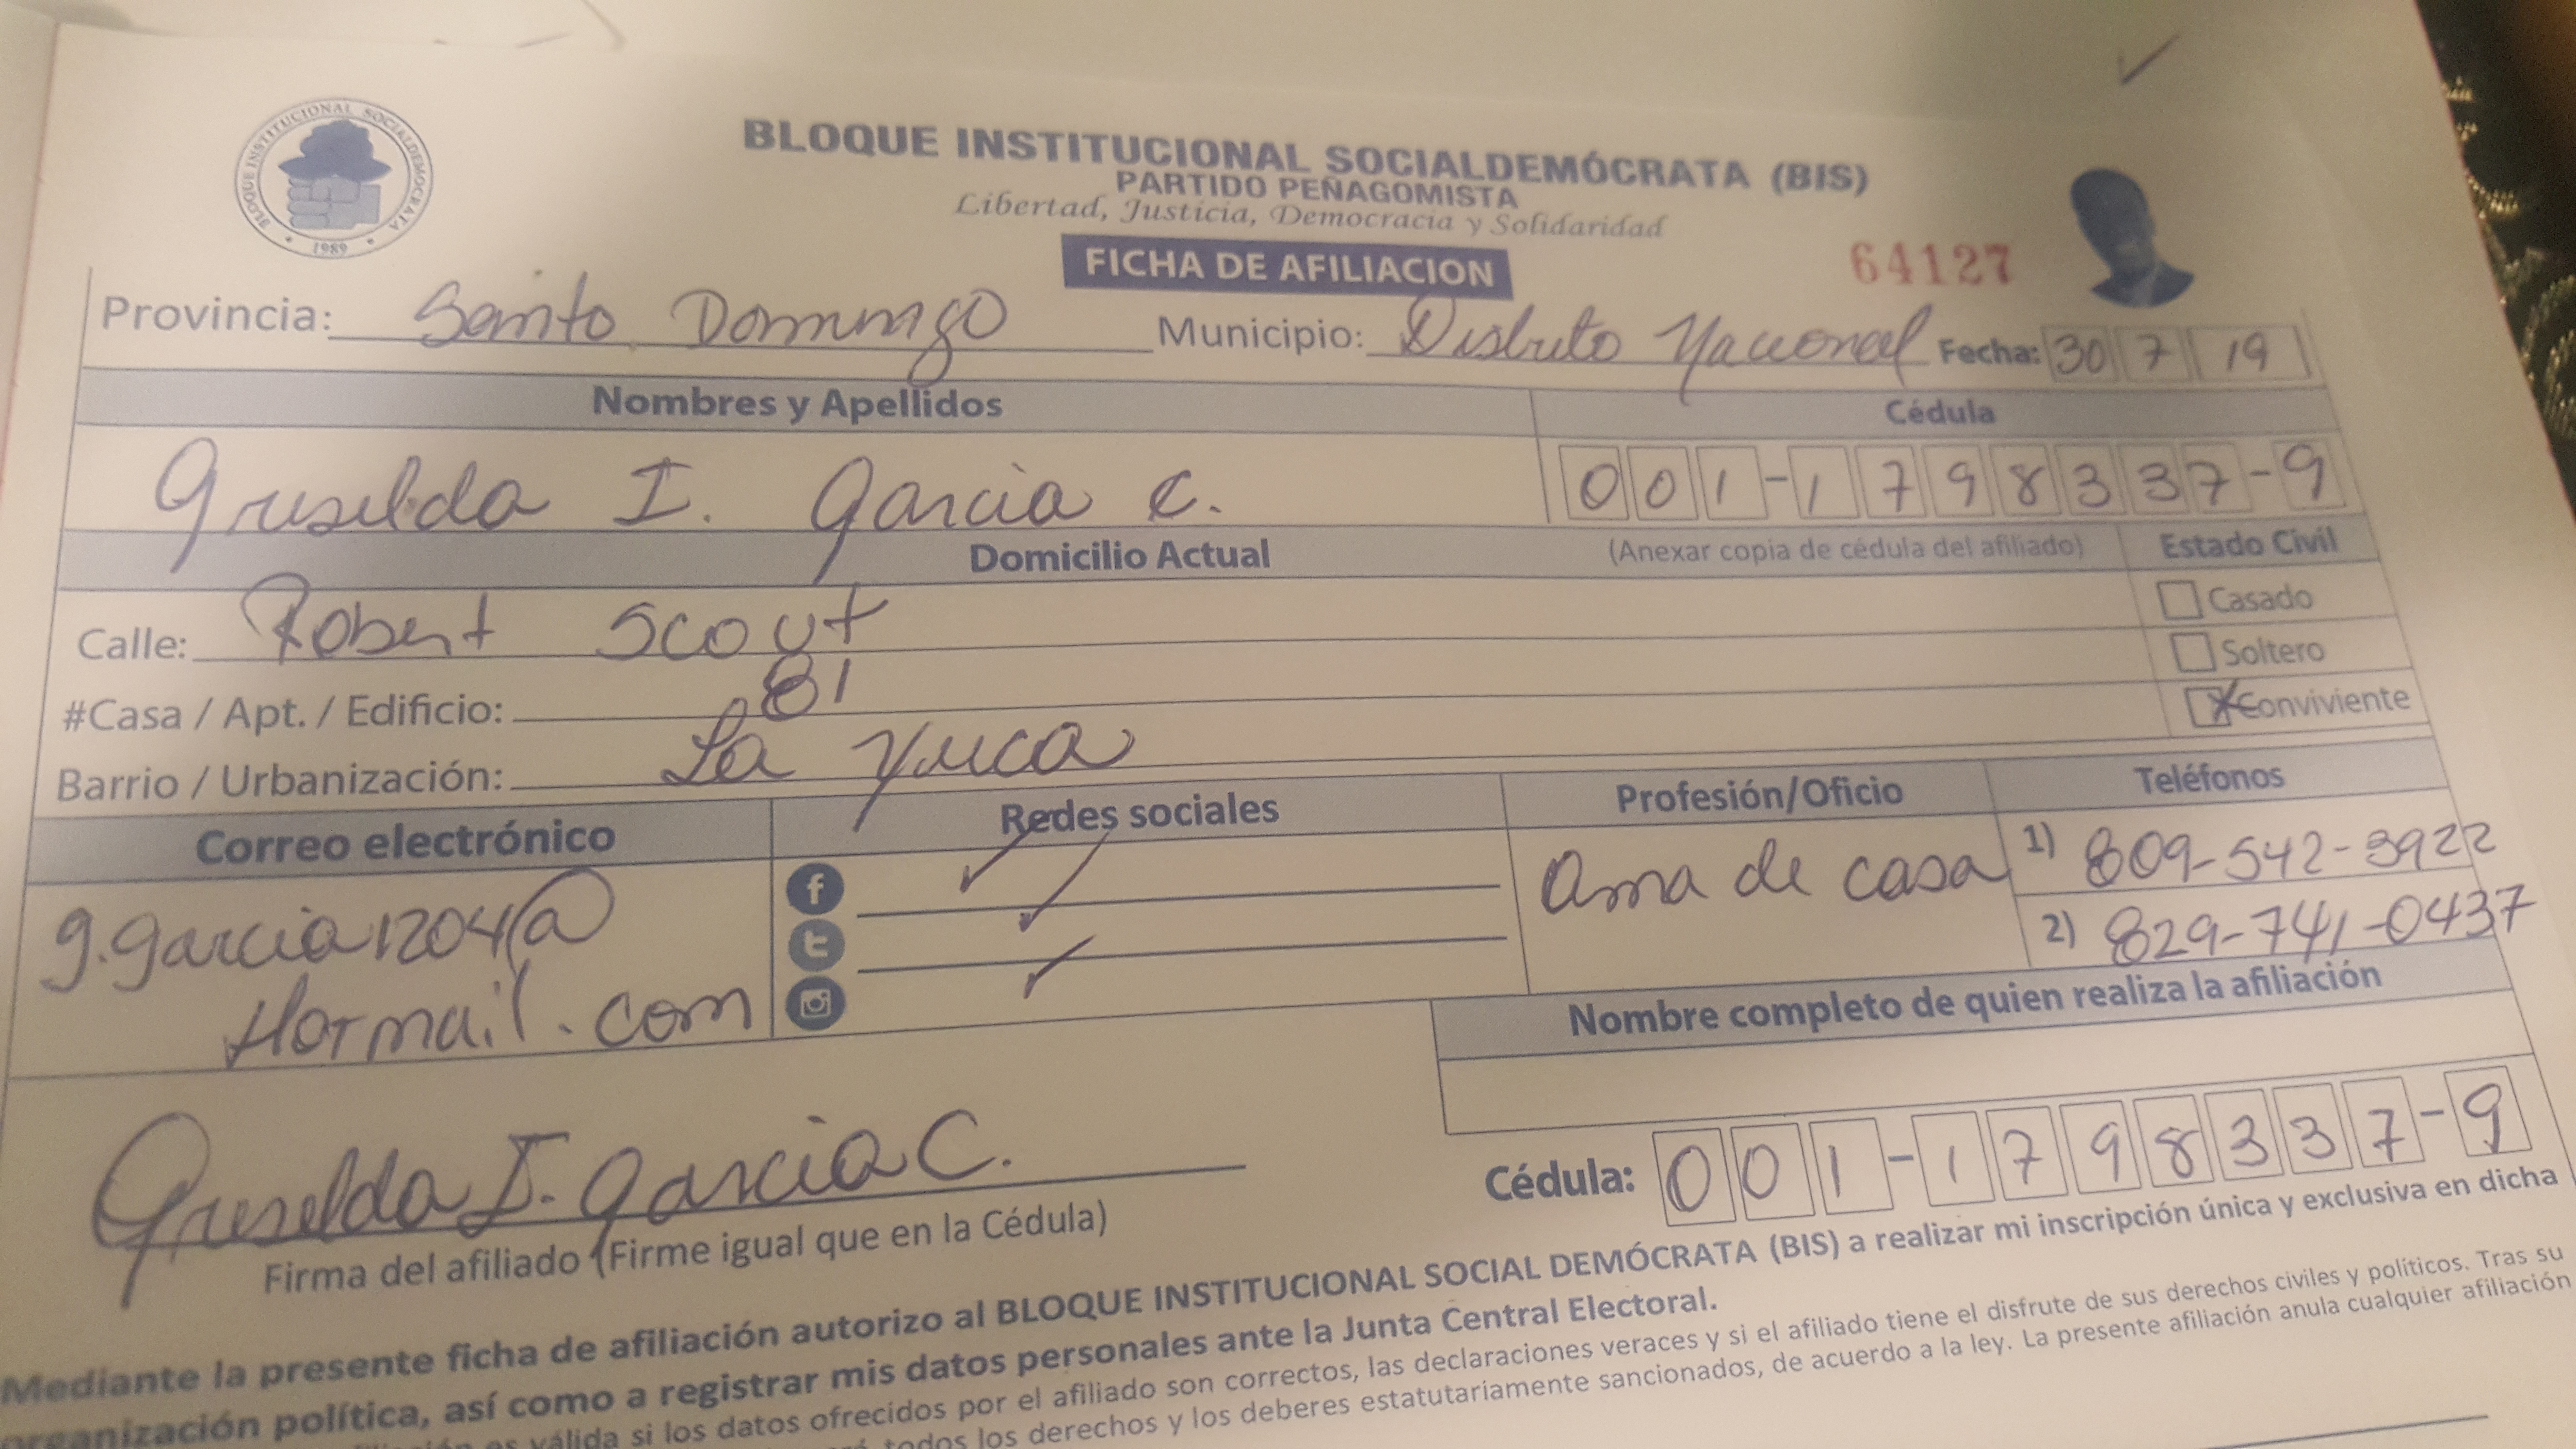 BLOQUE INSTITUCIONAL SOCIALDEMOCRATA
1989
BLOQUE INSTITUCIONAL SOCIALDEMÓCRATA (BIS)
PARTIDO PEÑAGOMISTA
Libertad, Justicia, Democracia y Solidaridad
FICHA DE AFILIACION
64127
Provincia: Santo Domingo Municipio: Distrito Nacional Fecha: 30 7 19
Nombres y Apellidos Cédula
Griselda I. Garcia C. 001-1798337-9
Domicilio Actual (Anexar copia de cédula del afiliado) Estado Civil
Calle: Robert Scout Casado
Soltero
#Casa / Apt. / Edificio: 81 Conviviente
Barrio / Urbanización: La Yuca
Correo electrónico Redes sociales Profesión/Oficio Teléfonos
g.garcia1204@ Ama de casa 1) 809-542-3922
Hotmail.com 2) 829-741-0437
Nombre completo de quien realiza la afiliación
Griselda I. Garcia C.
Cédula: 001-1798337-9
Firma del afiliado (Firme igual que en la Cédula)
Mediante la presente ficha de afiliación autorizo al BLOQUE INSTITUCIONAL SOCIAL DEMÓCRATA (BIS) a realizar mi inscripción única y exclusiva en dicha
organización política, así como a registrar mis datos personales ante la Junta Central Electoral.
es válida si los datos ofrecidos por el afiliado son correctos, las declaraciones veraces y si el afiliado tiene el disfrute de sus derechos civiles y políticos. Tras su
todos los derechos y los deberes estatutariamente sancionados, de acuerdo a la ley. La presente afiliación anula cualquier afiliación